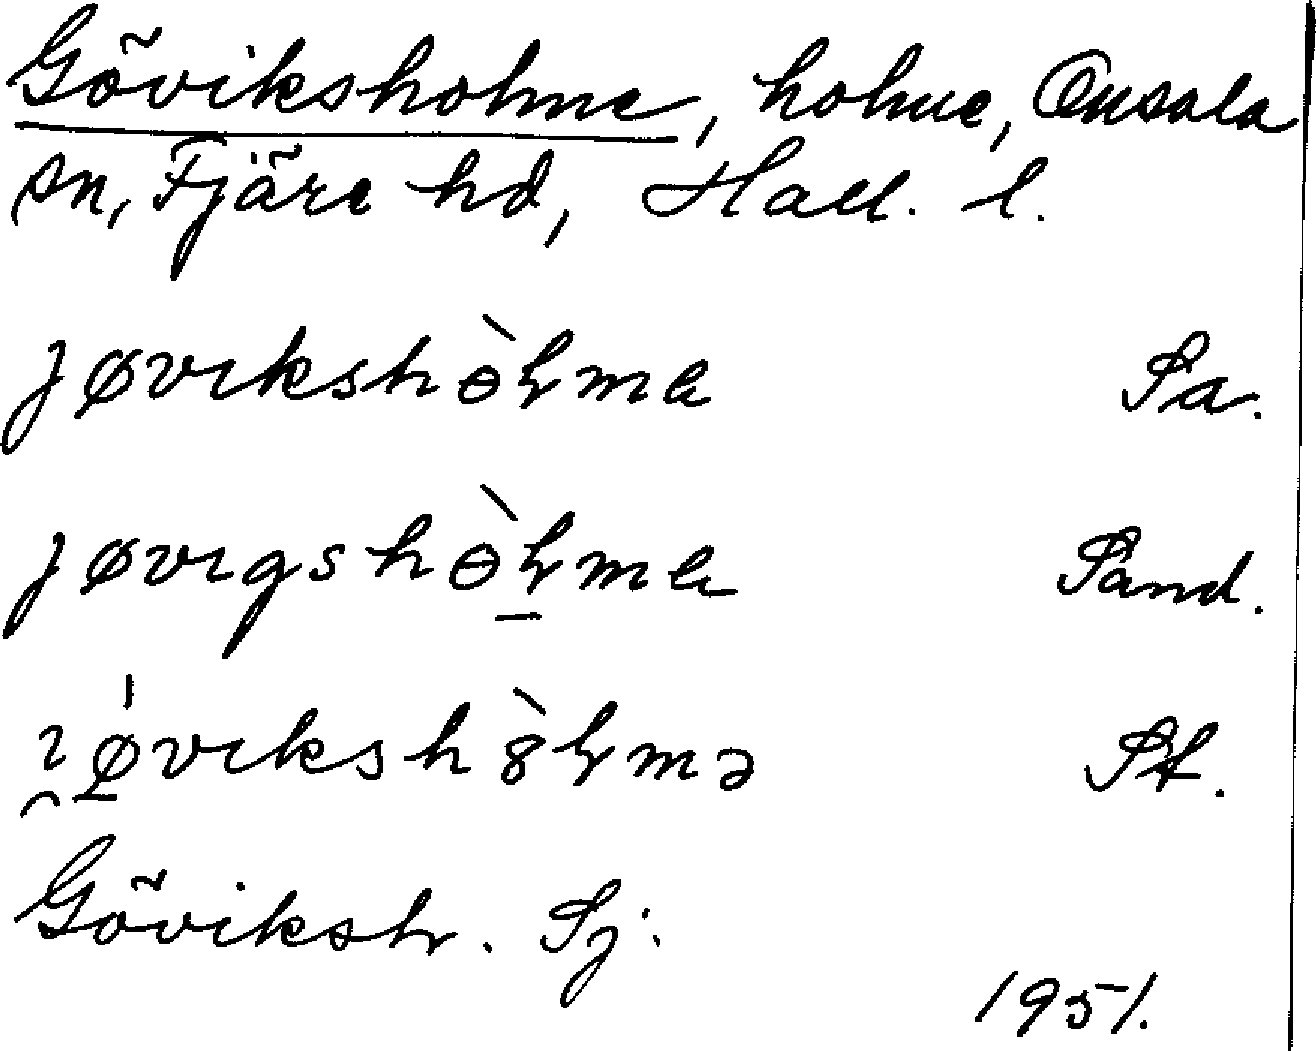 Göviksholme, holme, Onsala
sn, Fjäre hd, Hall. l.
jøvıkshòɫme Sa.
jøvıgshòɫme Sand.
ı̯ǿ̱vıkshòɫmə St.
Gövikshr. Sj.
1951.